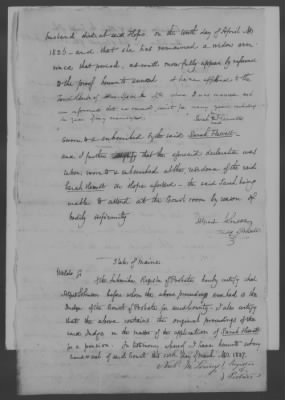 husband died at said Hope on the tenth day of April AD
1826 - and that she has remained a widow ever
since that period, as will more fully appear by reference
to the proof hereunto annexed I have applied to the
Town Clerk of where I was married and
am informed that no record exists for many years including
the year of my marriage. Sarah Hewett
sworn to & subscribed by the said Sarah Hewett
and I further certify that the aforesaid declaration was
taken sworn to & subscribed at the residence of the said
Sarah Hewett in Hope aforesaid - the said Sarah being
unable to attend at the Court room by reason of
bodily infirmity
Alfred Johnson
Judge of Probate
State of Maine
Waldo Ss
The Subscriber Register of Probate hereby certify that
Alfred Johnson before whom the above proceedings were had is the
Judge of the Court of Probate for said County - I also certify
that the above contains the original proceedings of the
said Judge in the matter of the application of Sarah Hewett
for a pension. In testimony whereof I have hereunto set my
hand & seal of said Court this day of March AD 1837.
Register
of Probate